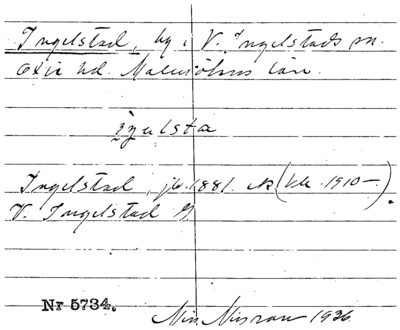 Ingelstad, by i V. Ingelstads sn.
Oxie hd. Malmöhus län.
iŋəlsta
Ingelstad, jb. 1881. ek (bk. 1910-).
V. Ingelstad G
Nr 5734.
1936